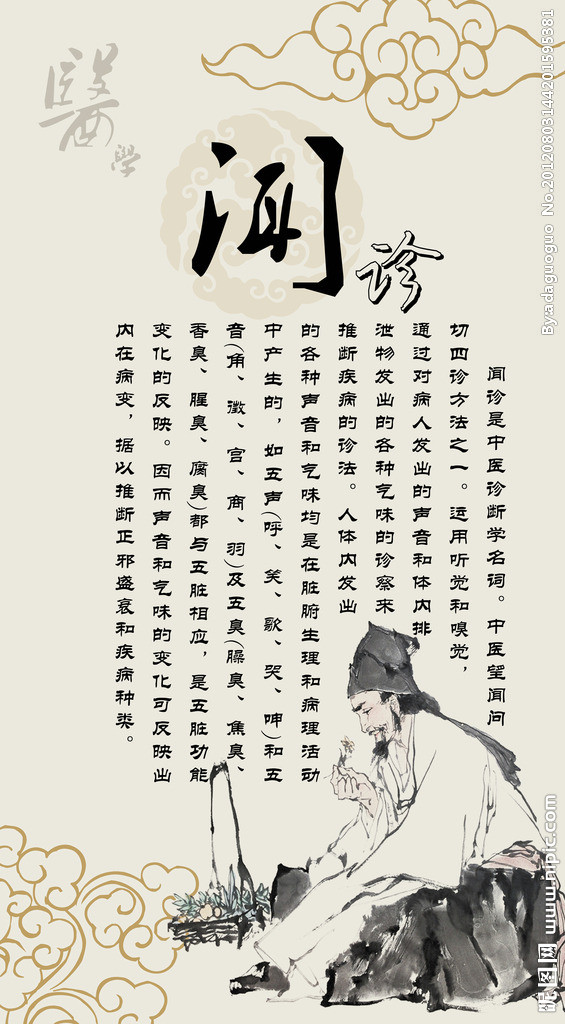 醫
學
闻
诊
闻诊是中医诊断学名词。中医望闻问
切四诊方法之一。运用听觉和嗅觉，
通过对病人发出的声音和体内排
泄物发出的各种气味的诊察来
推断疾病的诊法。人体内发出
的各种声音和气味均是在脏腑生理和病理活动
中产生的，如五声(呼、笑、歌、哭、呻)和五
音(角、徵、宫、商、羽)及五臭(臊臭、焦臭、
香臭、腥臭、腐臭)都与五脏相应，是五脏功能
变化的反映。因而声音和气味的变化可反映出
内在病变，据以推断正邪盛衰和疾病种类。
By:adaguoguo No.20120803144201595381
昵图网 www.nipic.com